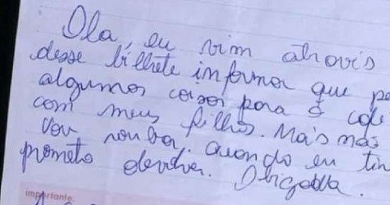 Ola, eu vim atravis
desse bilhete informar que pe
algumas coisas para o cole
com meus filhos. Mais não
vou roubar. Quando eu tin
prometo devolver. Obrigada.
importante: